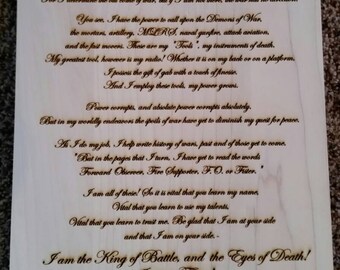 You are, I have the power to call upon the Demons of War,
the mortars, artillery, MLRS, naval gunfire, attack aviation,
and the fast movers. These are my "Tools", my instruments of death.
My greatest tool, however is my radio! Whether it is on my back or on a platform,
I possess the gift of gab with a touch of finesse.
And I employ these tools, my power grows.
Power corrupts, and absolute power corrupts absolutely.
But in my worldly endeavors the spoils of war have yet to diminish my quest for peace.
As I do my job, I help write history of wars, past and of those yet to come,
"But in the pages that I turn, I have yet to read the words
Forward Observer, Fire Supporter, F.O. or Fister."
I am all of these! So it is vital that you learn my name,
Vital that you learn to use my talents,
Vital that you learn to trust me. Be glad that I am at your side
and that I am on your side.-
I am the King of Battle, and the Eyes of Death!